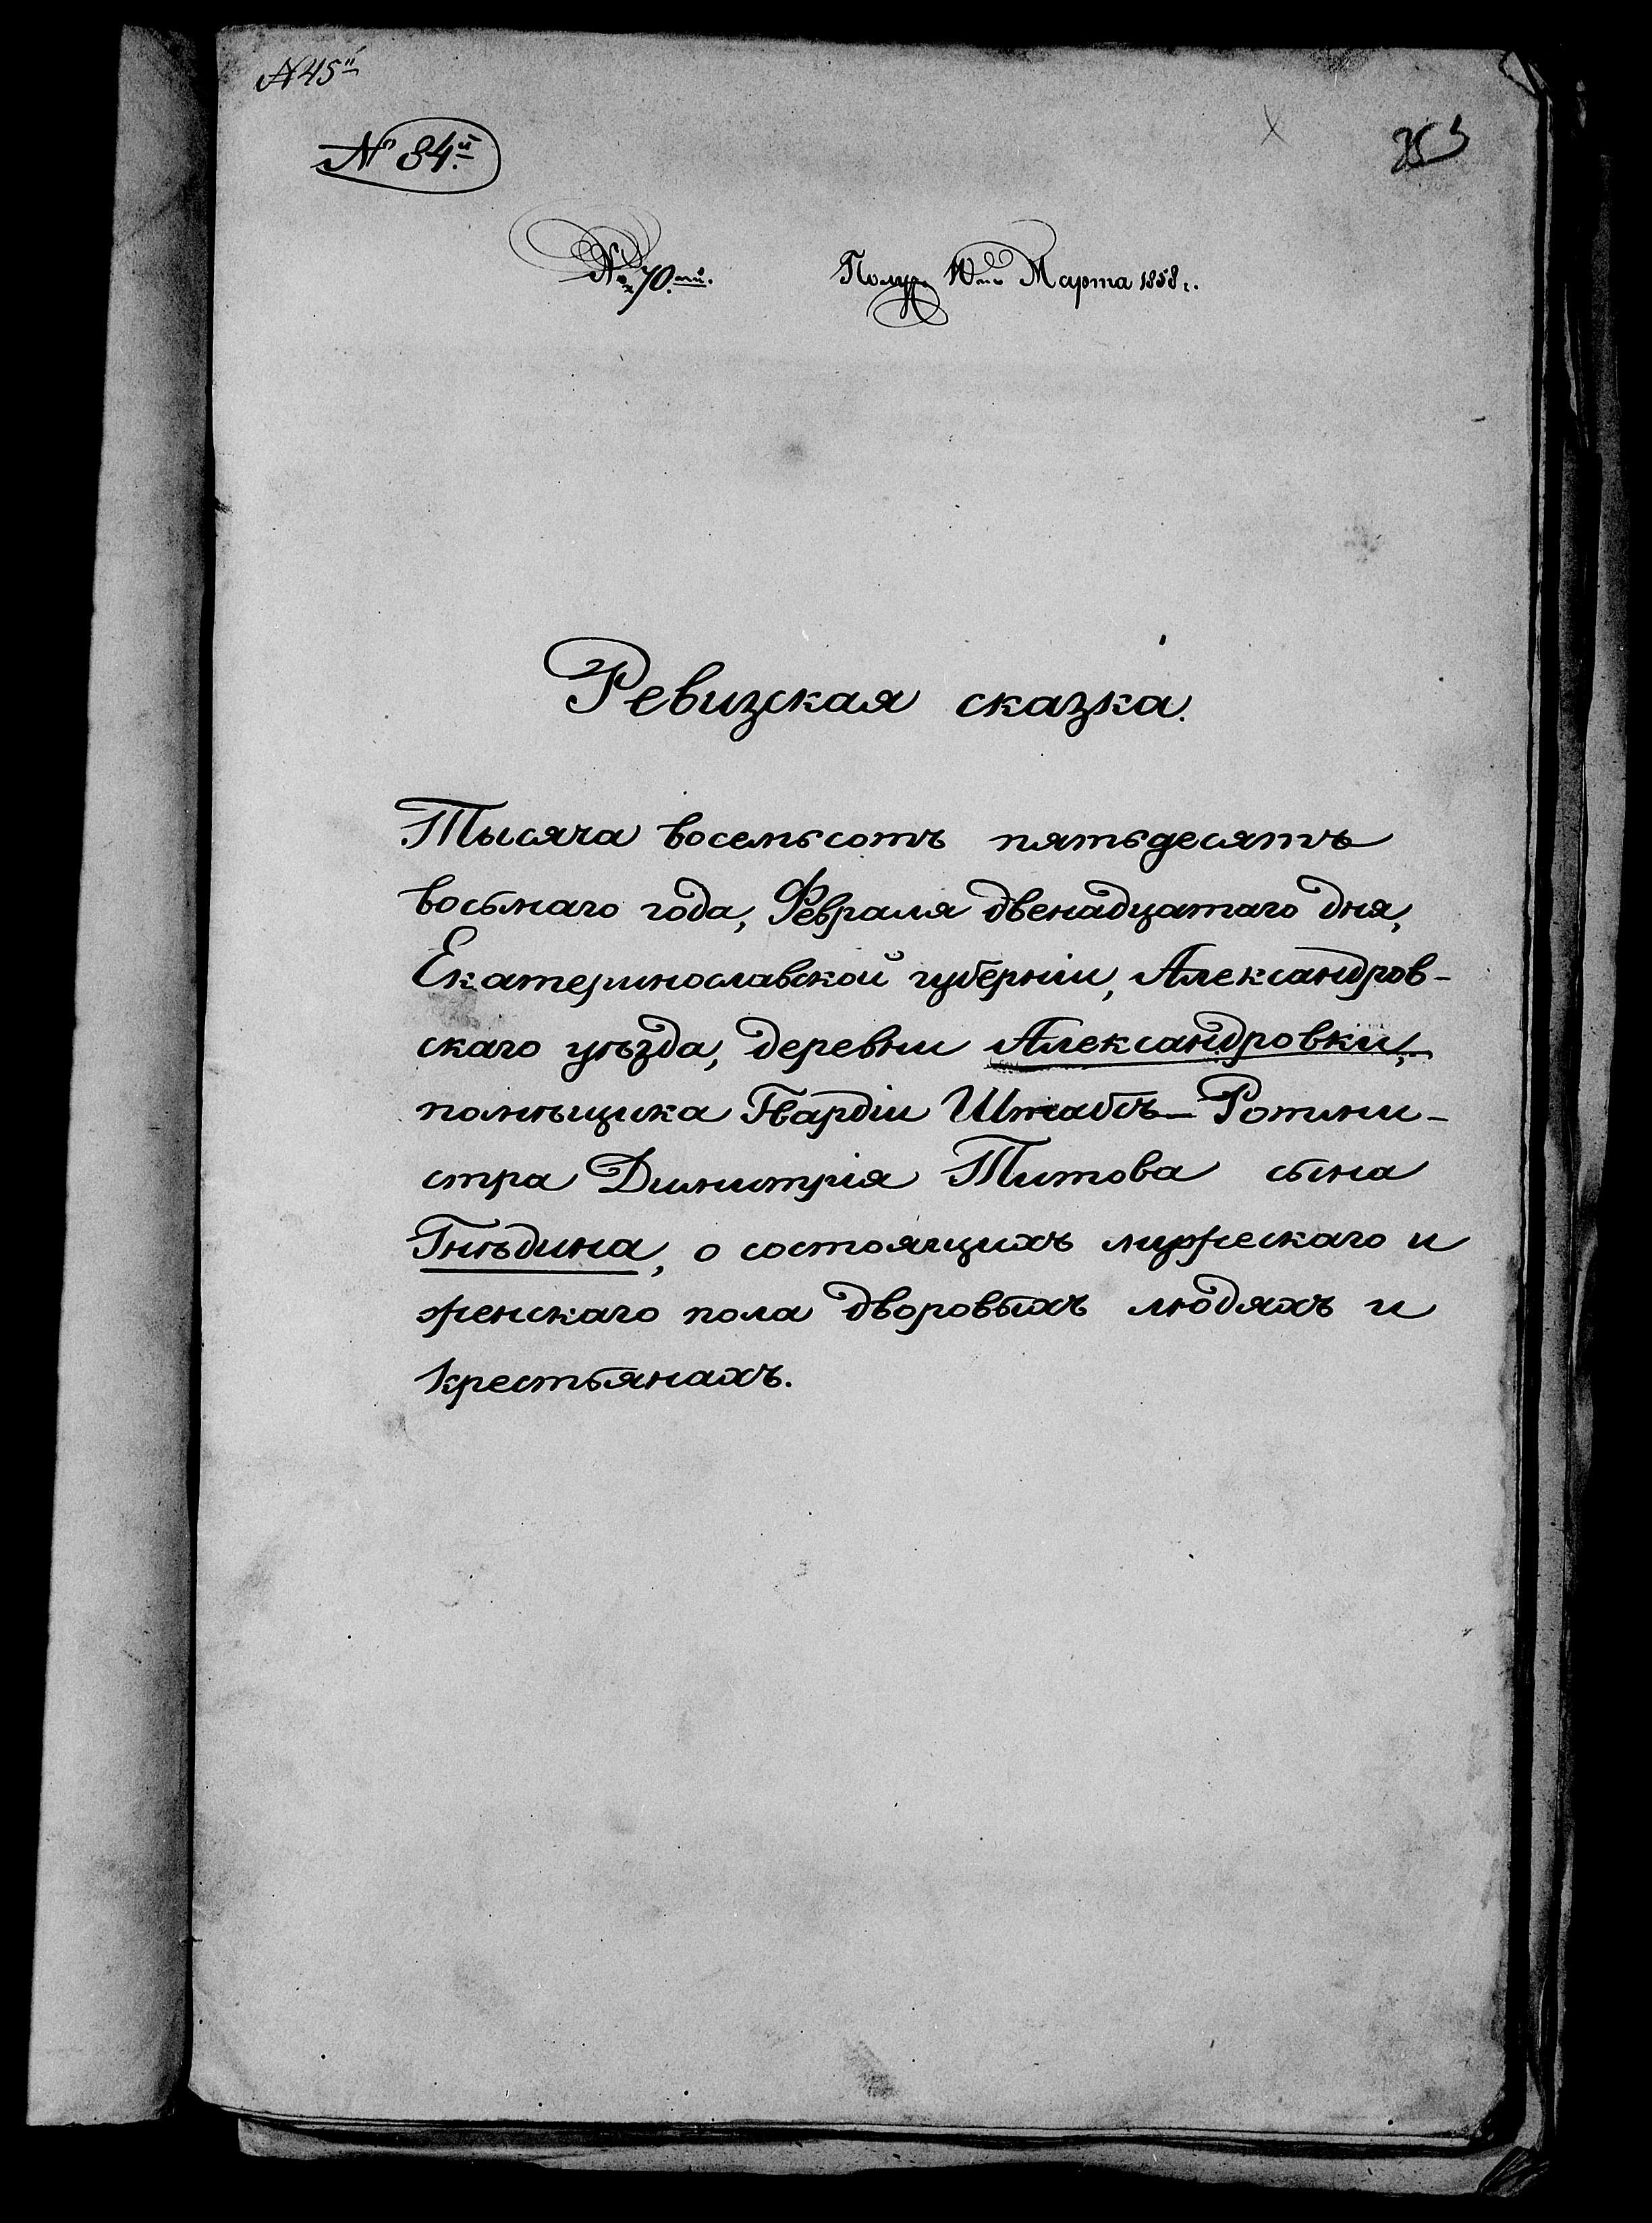 N 45й
N 84й
№ 70.ый.
Получ. 10го Марта 1858 г.
Ревизская сказка.
Тысяча восемьсотъ пятьдесятъ
восьмаго года, Февраля двенадцатаго дня,
Екатеринославской губерніи, Александров-
скаго уѣзда, деревни Александровки,
помѣщика Гвардіи Штабсъ-Ротми-
стра Димитрія Титова сына
Гнѣдина, о состоящихъ мужескаго и
женскаго пола дворовыхъ людяхъ и
крестьянахъ.